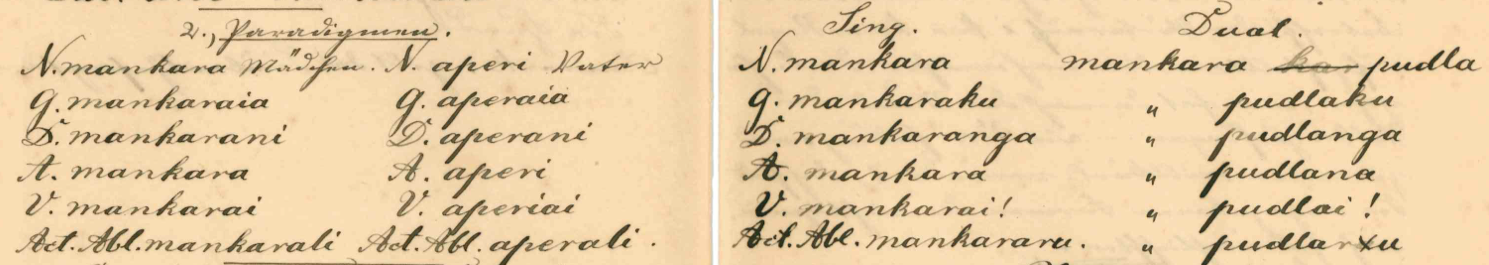 2., Paradigmen.
N. mankara Mädchen. N. aperi Vater
G. mankaraia G. aperaia
D. mankarani D. aperani
A. mankara A. aperi
V. mankarai V. aperiai
Act. Abl. mankarali Act. Abl. aperali.
Sing. Dual.
N. mankara mankara kar pudla
G. mankaraku " pudlaku
D. mankaranga " pudlanga
A. mankara " pudlana
V. mankarai! " pudlai!
Act. Abl. mankararu. " pudlaru